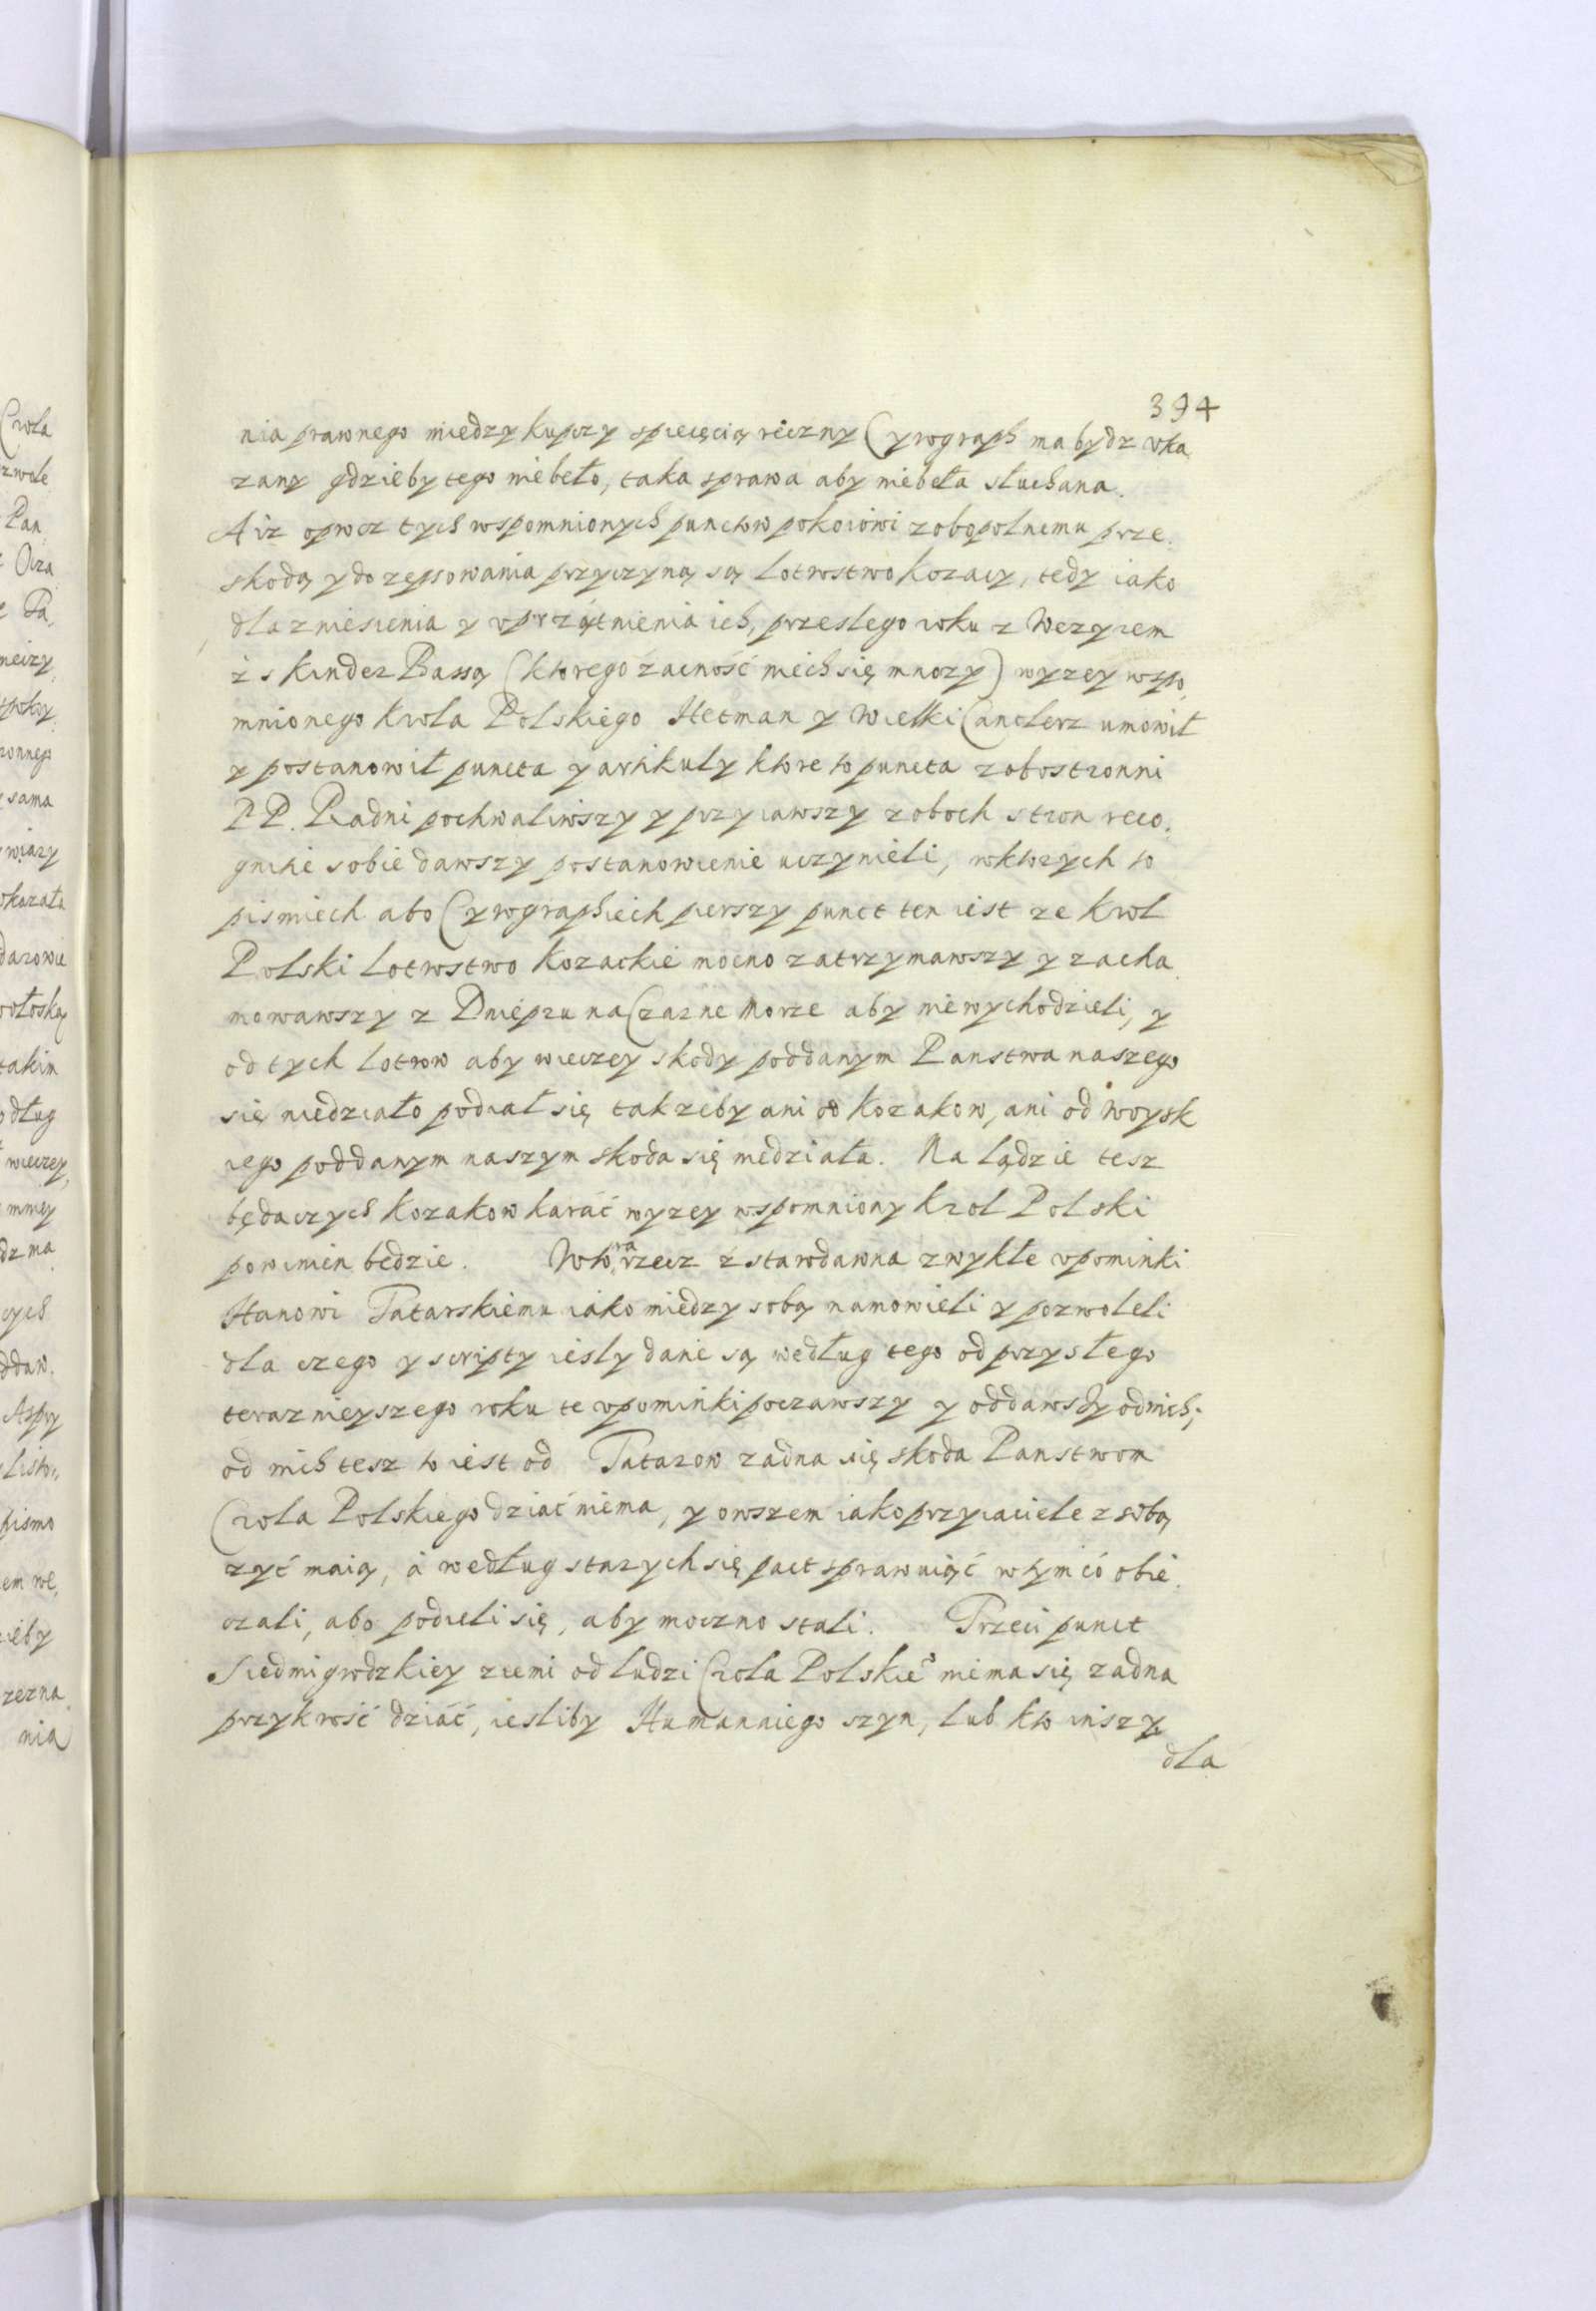 394
nia prawnego miedzy kupczy spieięcią riczny Cyrograph ma bydz vka,
zany gdzieby tego niebeło, taka sprawa aby niebeła słuchana.
A iz oprocz tych wspomnionych punctow pokoiowi zobopolnemu prze,
skodą y do zepsowania przyczyną są Lotrostwo Kozaczy, tedy iako
dla zniesienia y vprzątnienia ich, przeslego roku z Wezyrem
żskinder Bassą (ktorego zacność niech się mnozy) wyzey wspo,
mnionego Krola Polskiego Hetman y Wielki Canclerz umowił
y postanowił puncta y artikuly ktore to puncta z obostronni
P P. Radni pochwaliwszy y przyiawszy z oboch stron reco,
gnitie sobie dawszy postanowienie uczynieli, w ktorych to
pismiech abo Cyrographiech pierszy punct ten iest ze Krol
Polski Lotrostwo Kozackie mocno zatrzymawszy y zacha,
mowawszy z Dniepru na Czarne Morze aby niewychodzieli, y
od tych Lotrow aby wieczey skody poddanym Panstwa naszego
się niedziało podiał się takzeby ani od Kozakow, ani od Woysk
iego poddanym naszym skoda się niedziała. Na Lądzie tesz
będaczych Kozakow karać wyzey wspomniony Krol Polski
powinien bedzie. Wtora rzecz z starodawna zwykłe vpominki
Hanowi Tatarskiemu iako miedzy sobą namowieli y pozwoleli
dla czego y scripty iesly dane są według tego od przysłego
teraznieyszego roku te vpominki poczawszy y oddawszy od nich;
od nich tesz to iest od Tatarow zadna się skoda Panstwom
Crola Polskiego dziać niema, y owszem iako przyiaciele z sobą
zyć maią, à według starych się pact sprawuiąć w tym có obie,
czali, abo podieli się, aby moczno stali. Trzeci punct
Siedmigrodzkiey ziemi od ludzi Crola Polskie° niema się zadna
przykrość dziać, iesliby Humanaiego szyn, lub kto inszy
dla